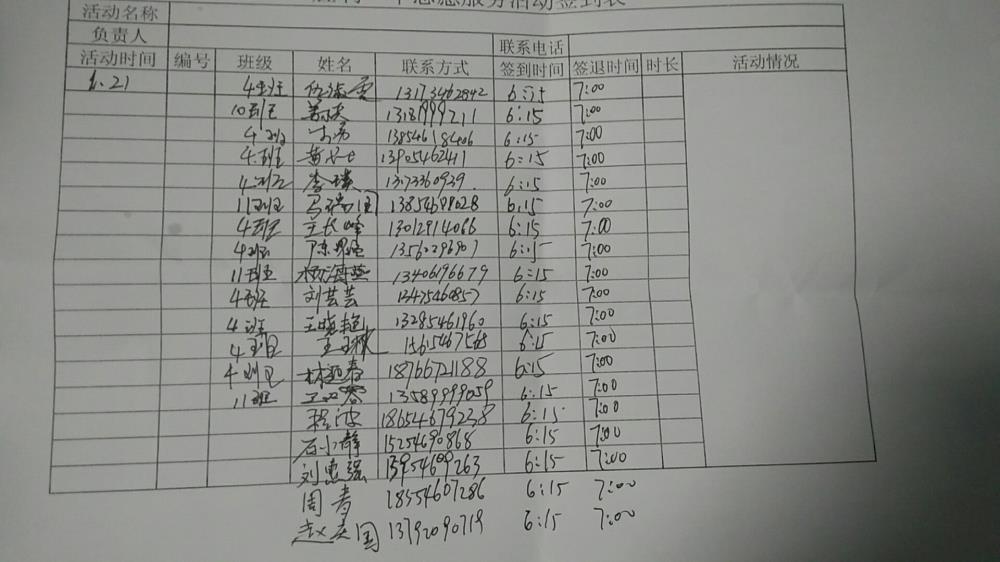 志愿服务活动签到表
活动名称
负责人 联系电话
活动时间 编号 班级 姓名 联系方式 签到时间 签退时间 时长 活动情况
6.21 4班 13173462842 6:15 7:00
10班 13181999211 6:15 7:00
4班 13854618406 6:15 7:00
4班 13905462411 6:15 7:00
4班 李 6:15 7:00
11班 13854698028 6:15 7:00
4班 王长峰 13012914066 6:15 7:00
4班 陈 13560296901 6:15 7:00
11班 杨海燕 13406196679 6:15 7:00
4班 刘芸芸 6:15 7:00
4班 王晓艳 13285461960 6:15 7:00
4班 王玉秋 15615467568 6:15 7:00
4班 林 18766721188 6:15 7:00
11班 13589999059 6:15 7:00
程波 18654679238 6:15 7:00
石小静 15254690868 6:15 7:00
刘惠强 13954609263 6:15 7:00
周青 18554607286 6:15 7:00
赵庆国 13792090719 6:15 7:00